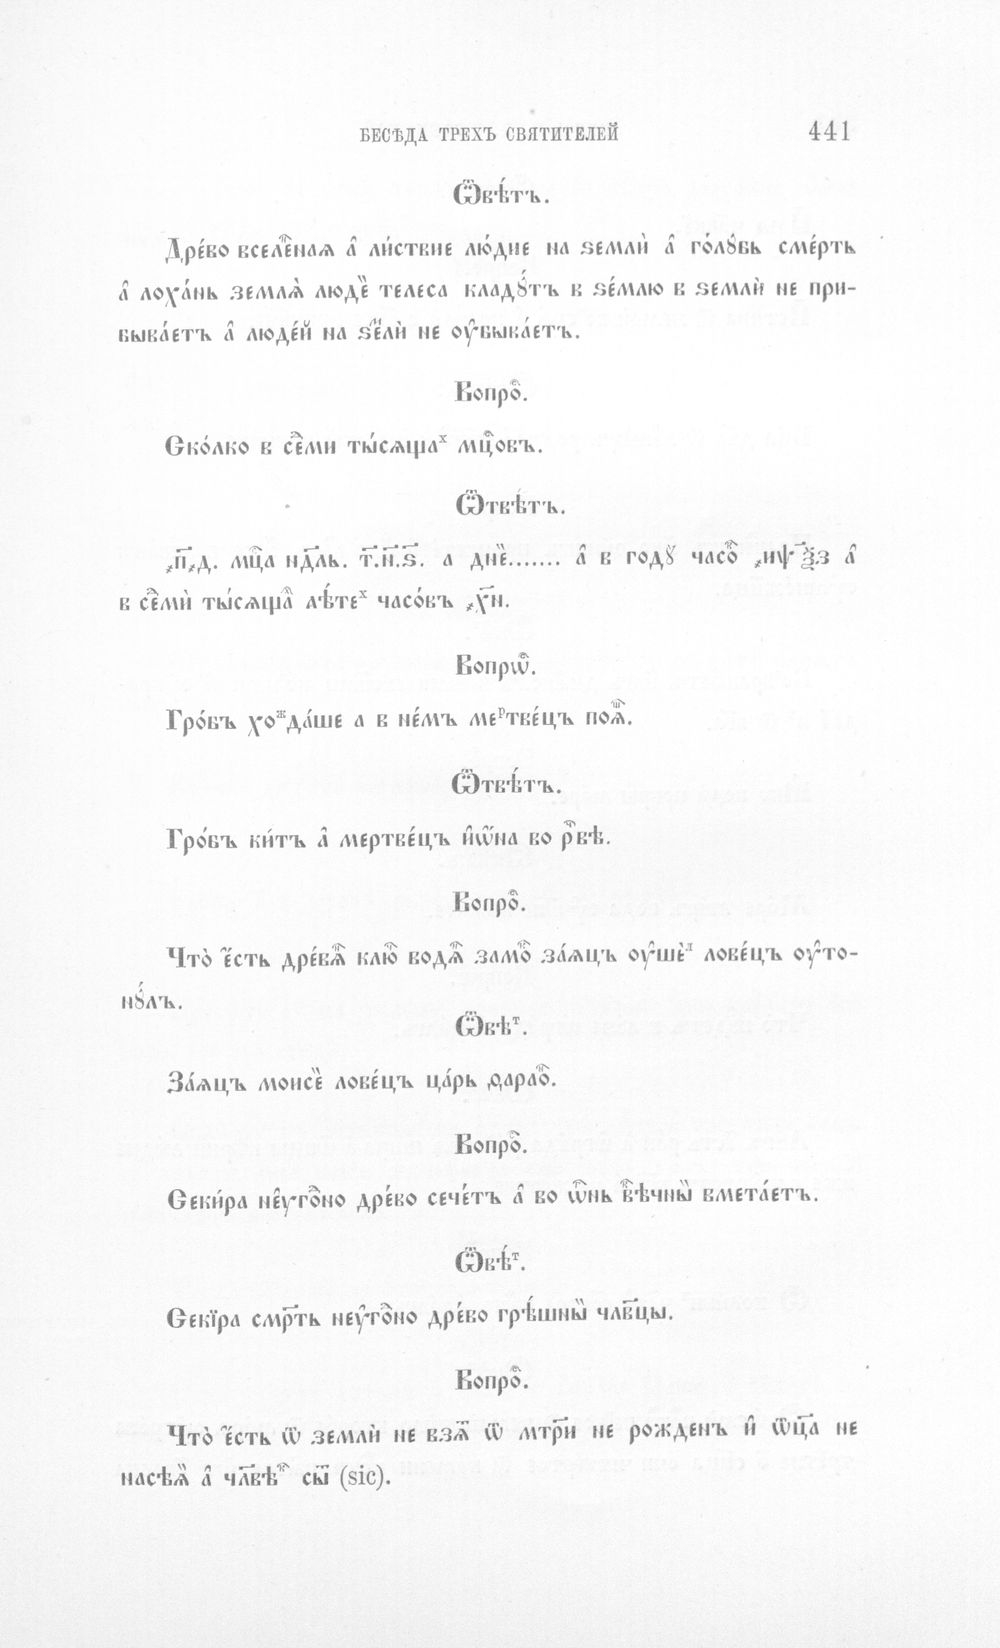 БЕСѢДА ТРЕХЪ СВЯТИТЕЛЕЙ 441
Ѿвѣ́тъ.
Дре́во вселеⷩ҇ная а҆ ли́ствие лю́дие на ѕемлѝ а҆ го́лꙋбь сме́рть
а҆ лоха́нь землѧ̀ людеⷨ телеса кладꙋ́тъ в ѕе́млю в ѕемлѝ не при-
быва́етъ а҆ люде́й на ѕеⷨлѝ не оу҆быва́етъ.
Вопроⷭ҇.
Ско́лко в сеⷣми ты́сѧщаⷯ мⷭ҇цовъ.
Ѿтвѣ́тъ.
҂п҃҂д. мⷭ҇ца нд҃ль. т҃.н҃.ѕ҃. а днеⷨ....... а҆ в годꙋ̀ часоⷡ҇ ҂иѱ҃ѯ҃з а҆
в сеⷣмѝ ты́сѧщаⷯ лѣ́теⷯ часо́въ ҂х҃н.
Вопрѡⷭ҇.
Гро́бъ хоⷤда́ше а в не́мъ меⷬтве́цъ пояⷲ.
Ѿтвѣ́тъ.
Гро́бъ ки́тъ а҆ мертве́цъ и҆ѡ҆́на во рⷪ҇вѣ.
Вопроⷭ҇.
Что̀ е҆́сть древѧⷩ҇ клюⷱ҇ водѧⷩ҇ замоⷦ҇ за́ѧцъ оу҆шеⷧ̀ лове́цъ оу҆то-
нꙋ́лъ.
Ѿвѣⷮ.
За́ѧцъ моисеⷽ лове́цъ ца́рь ѳараоⷩ҇.
Вопроⷭ҇.
Секи́ра не҆угоⷣно дре́во сече́тъ а҆ во ѡⷢ҇нь вⷷ҇ѣчныⷽ вмета́етъ.
Ѿвѣ́ⷮ.
Секїра смр҃ть неу҆гоⷣно дре́во грѣ́шныⷽ члв҃цы.
Вопроⷭ҇.
Что̀ е҆́сть ѿ землѝ не взѧⷮ ѿ мтр҃и не рожденъ и҆ ѿц҃а не
насѣѧⷩ а҆ чл҃вѣⷦ҇ сы҃й (sic).